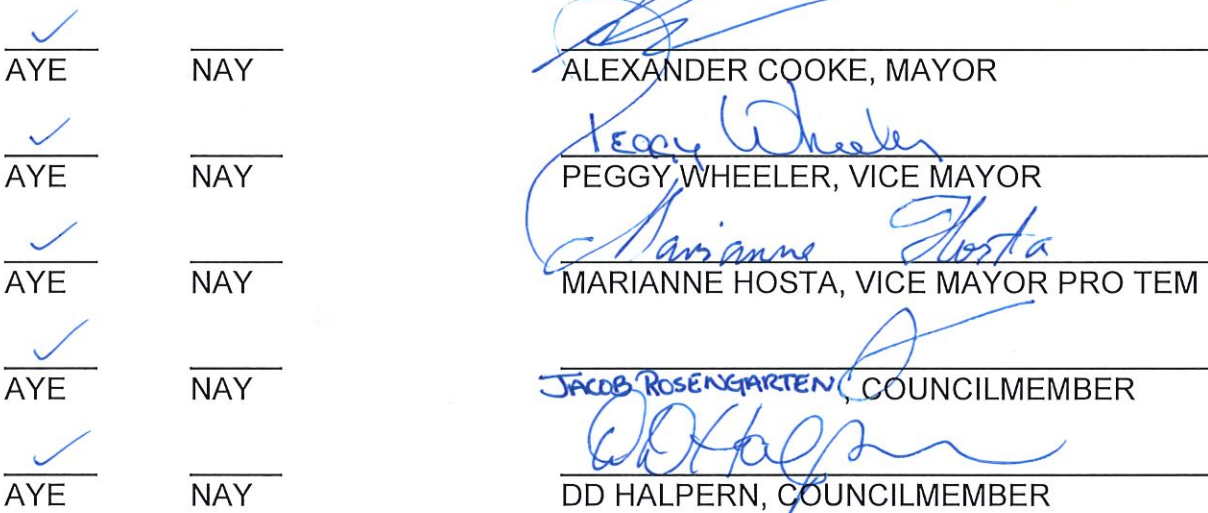 AYE NAY ALEXANDER COOKE, MAYOR
Peggy Wheeler
AYE NAY PEGGY WHEELER, VICE MAYOR
Marianne Hosta
AYE NAY MARIANNE HOSTA, VICE MAYOR PRO TEM
AYE NAY JACOB ROSENGARTEN, COUNCILMEMBER
DD Halpern
AYE NAY DD HALPERN, COUNCILMEMBER